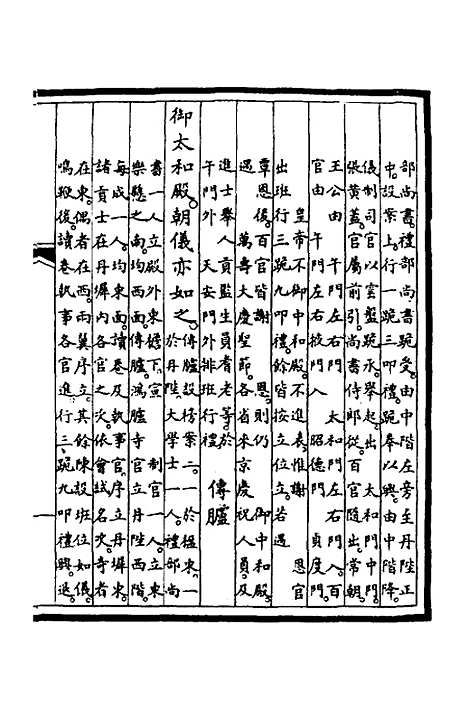 部尚書禮部尚書跪受由中階左旁至丹陛正
中設案上行一跪三叩禮跪奉以興由中階降
儀制司官以雲盤跪承舉起出 太和門中門
張黃蓋官屬前引尚書侍郎從百官隨出常朝
王公由 午門左右門 太和門左右門入百
官由 午門左右掖門入 昭德門 貞度門
皇帝不御中和殿不進表惟謝 恩官
出班行三跪九叩禮餘皆不按立位立若遇
覃恩後百官皆謝 恩則仍 御中和殿
遇 萬壽大慶聖節各省來京慶祝人員及
進士舉人貢監生員耆老等於
午門外 天安門外排班行禮 傳臚
御太和殿朝儀亦如之傳臚設榜案二一於楹東一
於丹陛大學士一人禮部尚
書一人立殿外東檐下宣 制官一人立東
樂懸之南均西面傳臚鴻臚寺官立丹陛西階
每成一人均東面讀卷及執事官序立丹墀東
諸貢士在丹墀內各官之次依會試名次奇者
在東偶者在西兩翼序立其餘陳設班位如儀
鳴鞭後讀卷執事各官進行三跪九叩禮興退